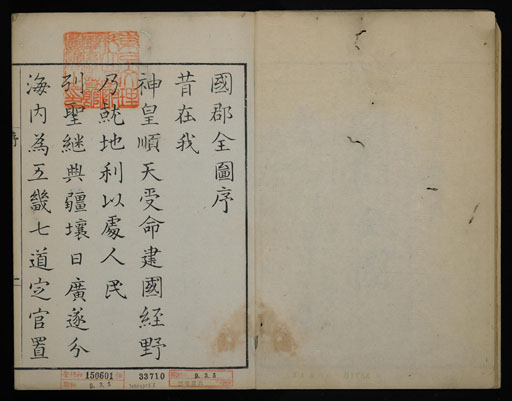 國郡全圖序
昔在我
神皇順天受命建國經野
乃就地利以處人民
列聖繼興疆壤日廣遂分
海内為五畿七道定官置
序
一
150601
9.3.5
33710
9.3.5